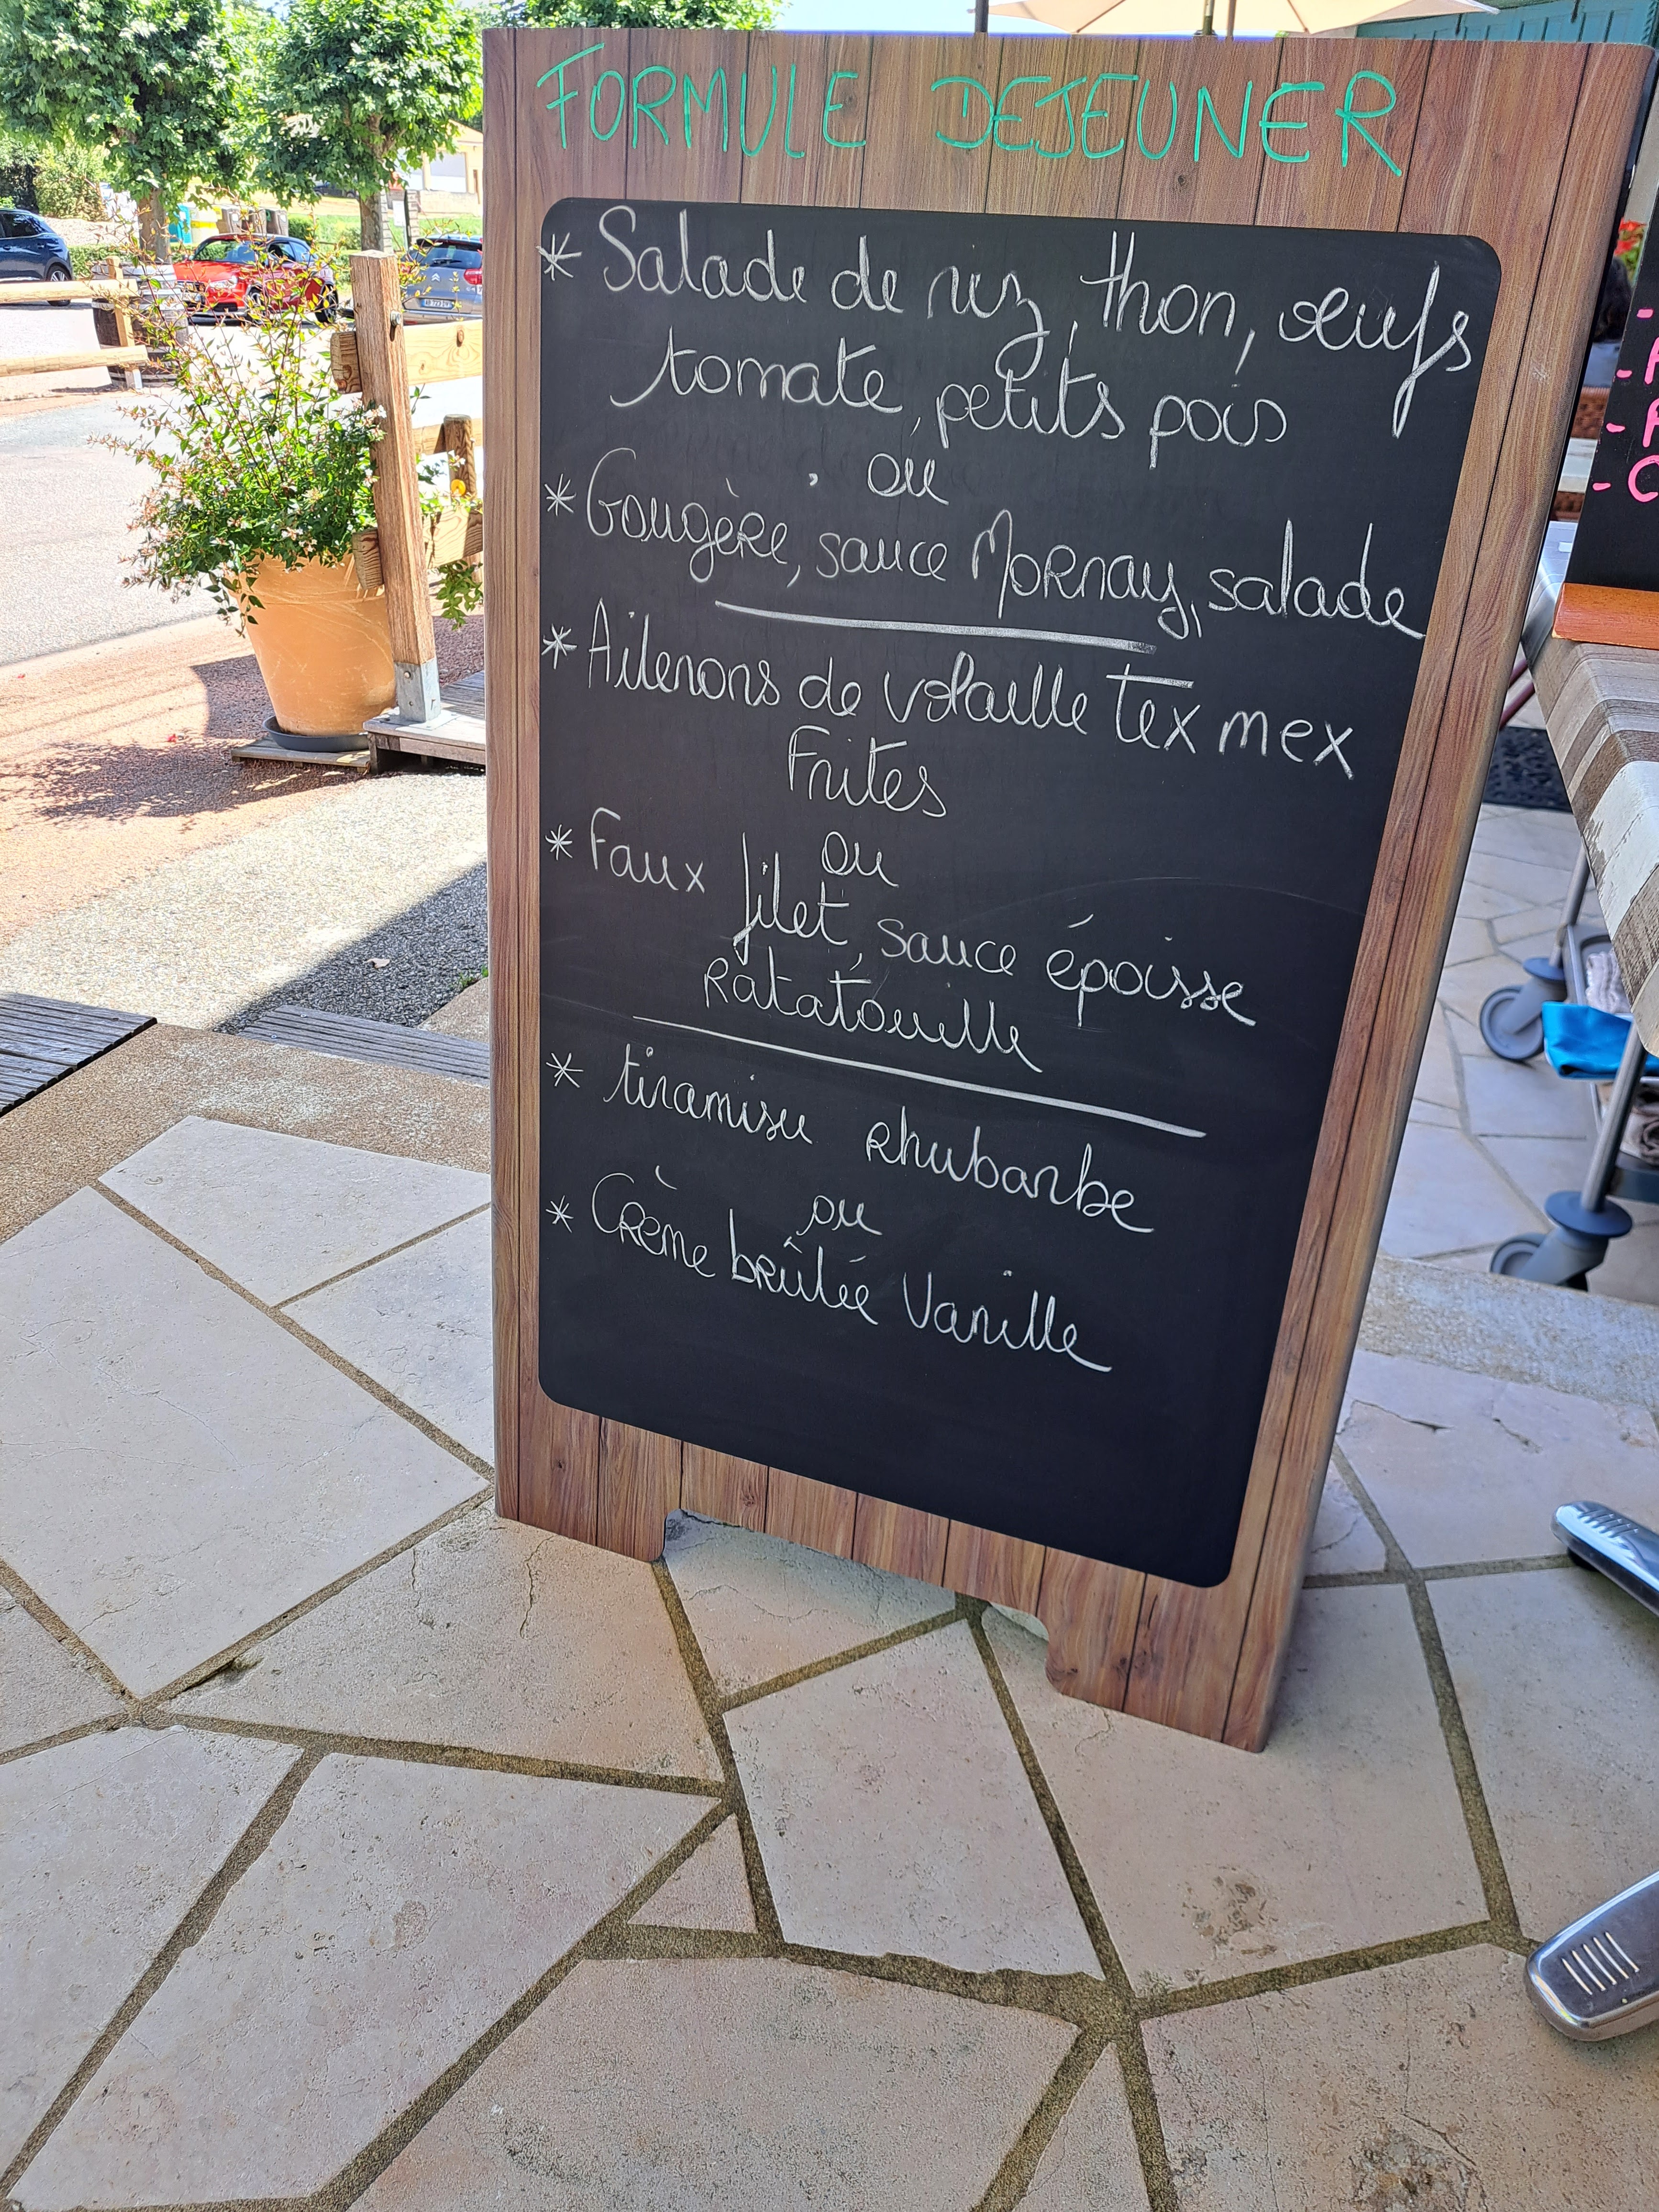 FORMULE DEJEUNER
* Salade de riz, thon, œufs
tomate, petits pois
ou
* Gougère, sauce Mornay, salade
* Ailerons de volaille tex mex
Frites
ou
* Faux filet, sauce époisse
Ratatouille
* tiramisu rhubarbe
ou
* Crème brûlée Vanille